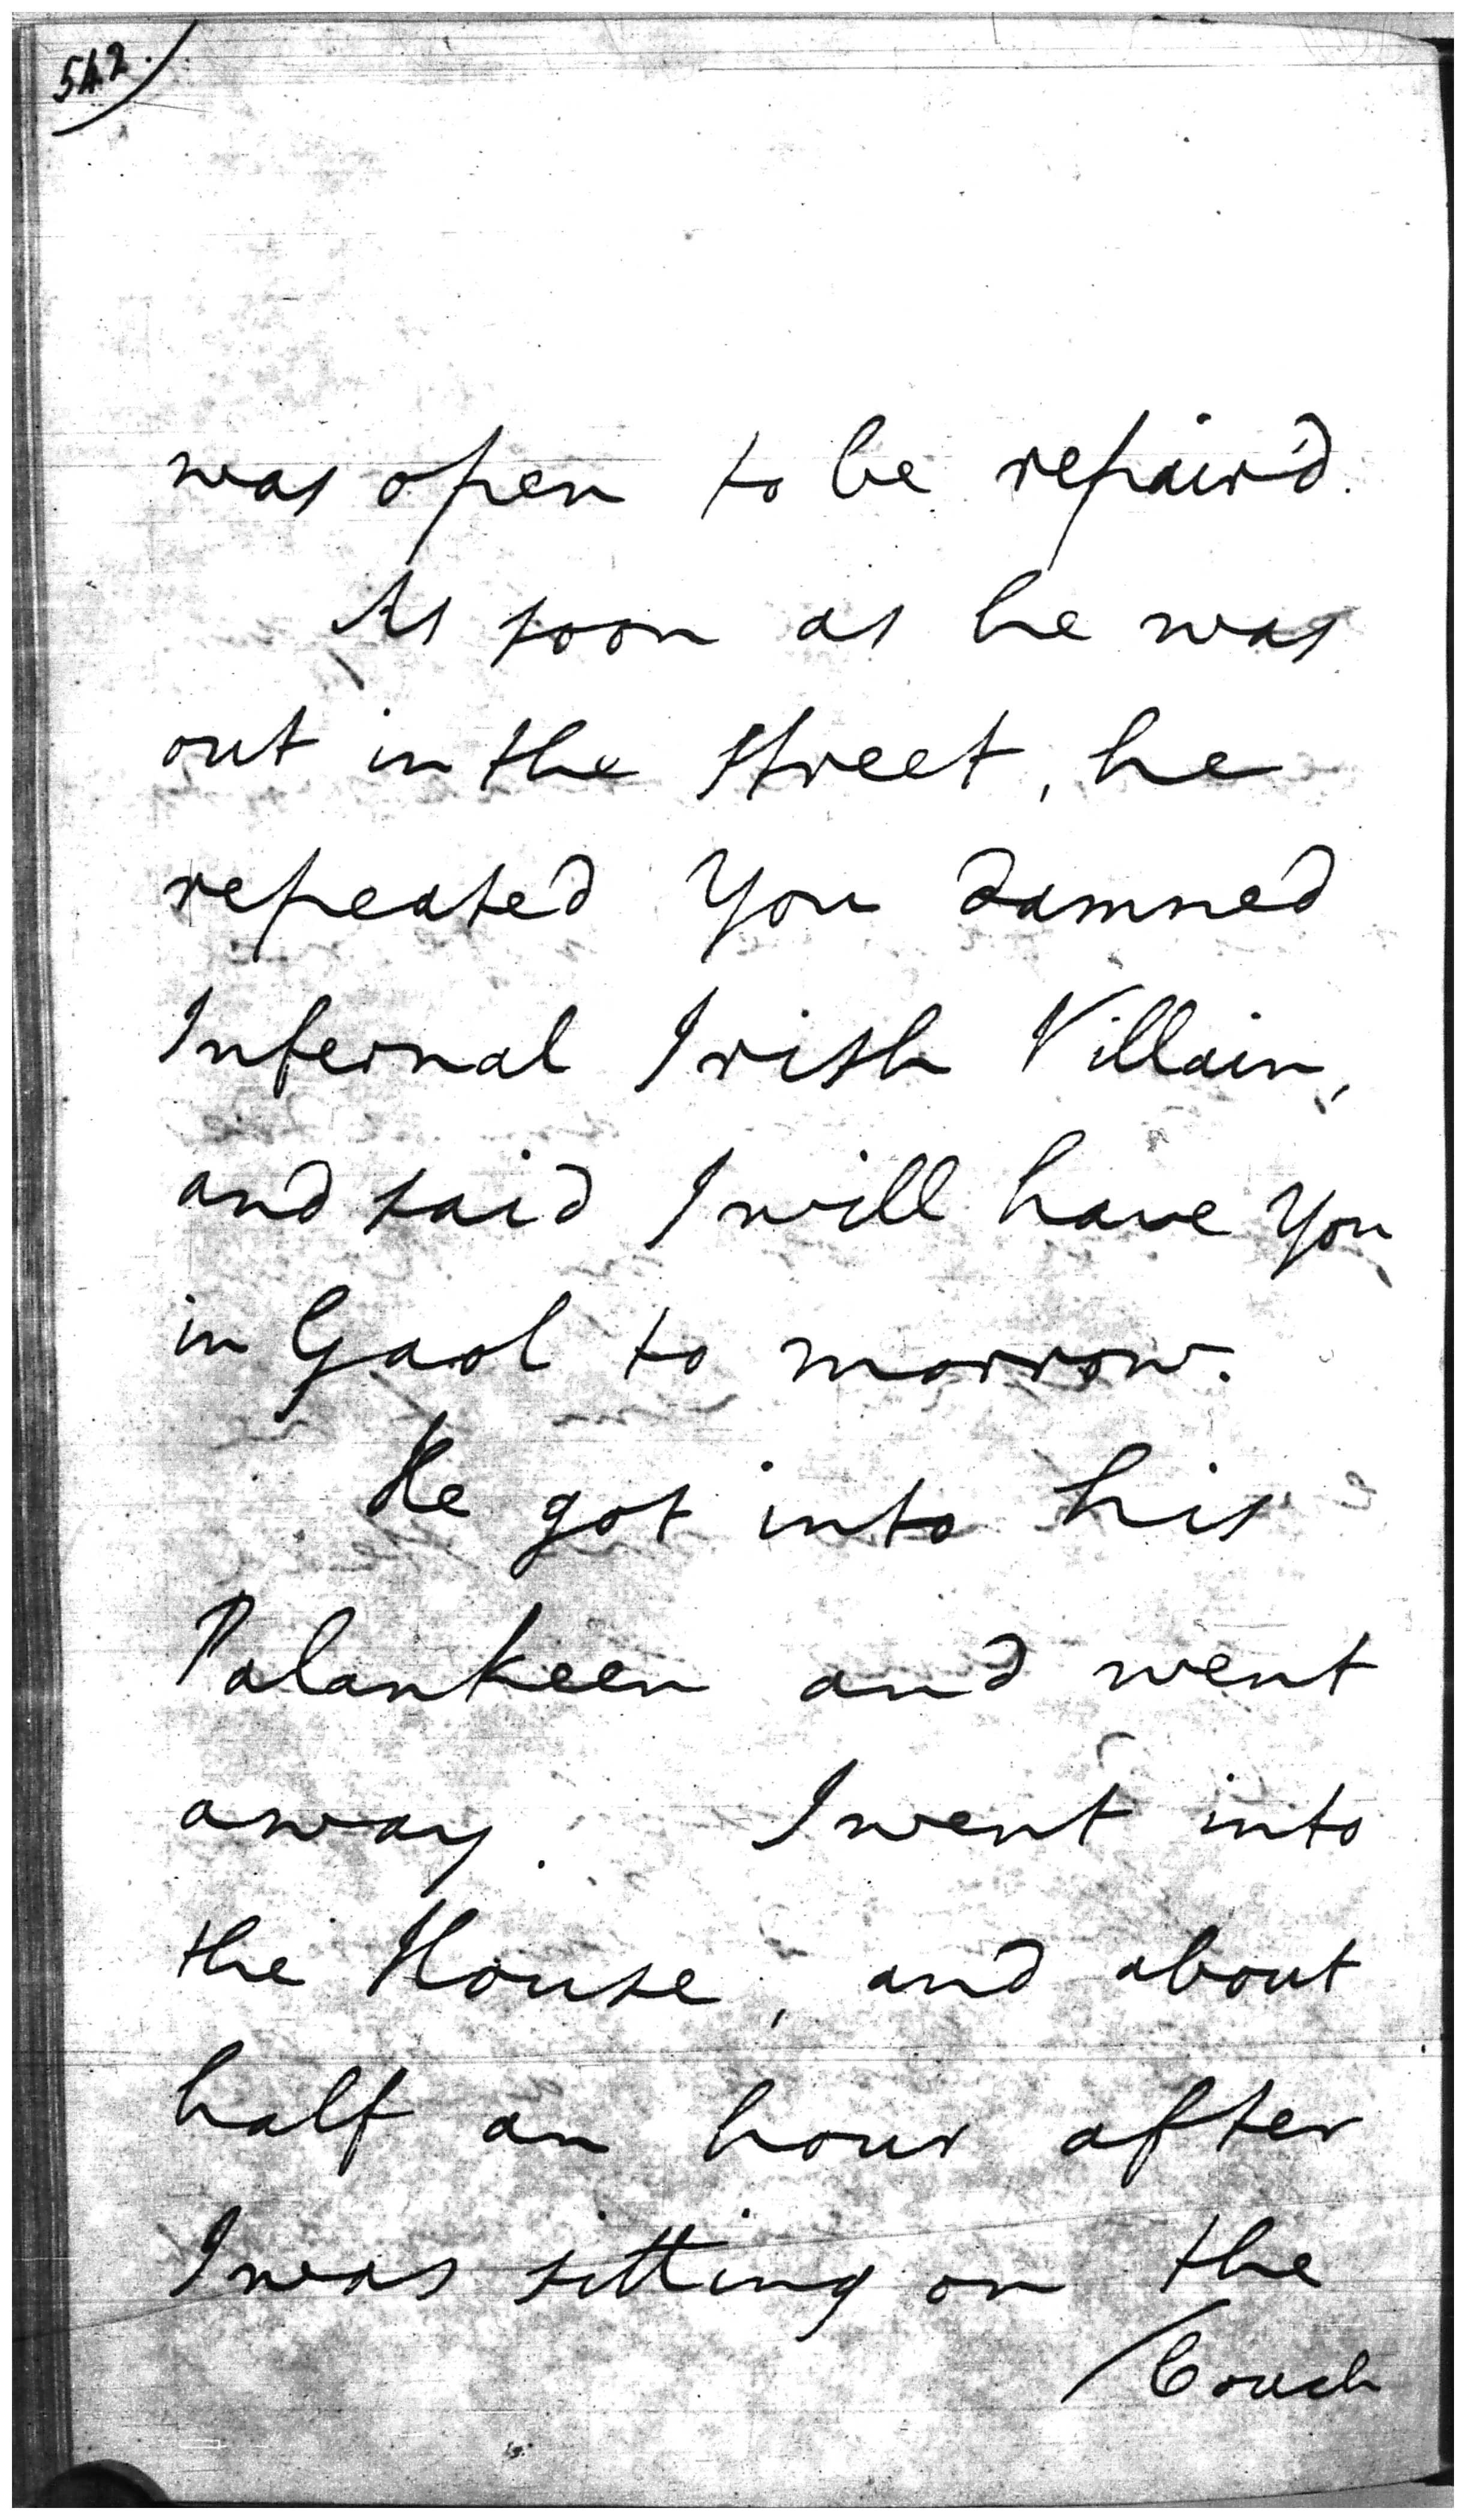 542.
was open to be repair'd.
As soon as he was
out in the street, he
repeated You damned
Infernal Irish Villain,
and said I will have You
in Gaol to morrow.
He got into his
Palankeen and went
away. I went into
the House, and about
half an hour after
I was sitting on the
/Couch